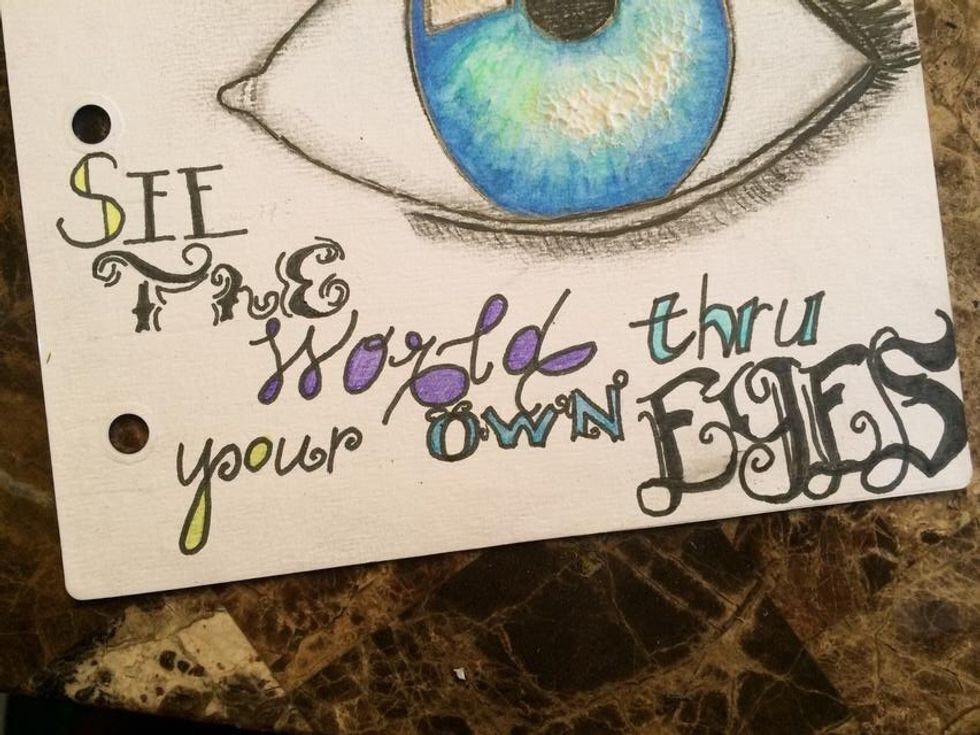 SEE
THE
World thru
your OWN EYES